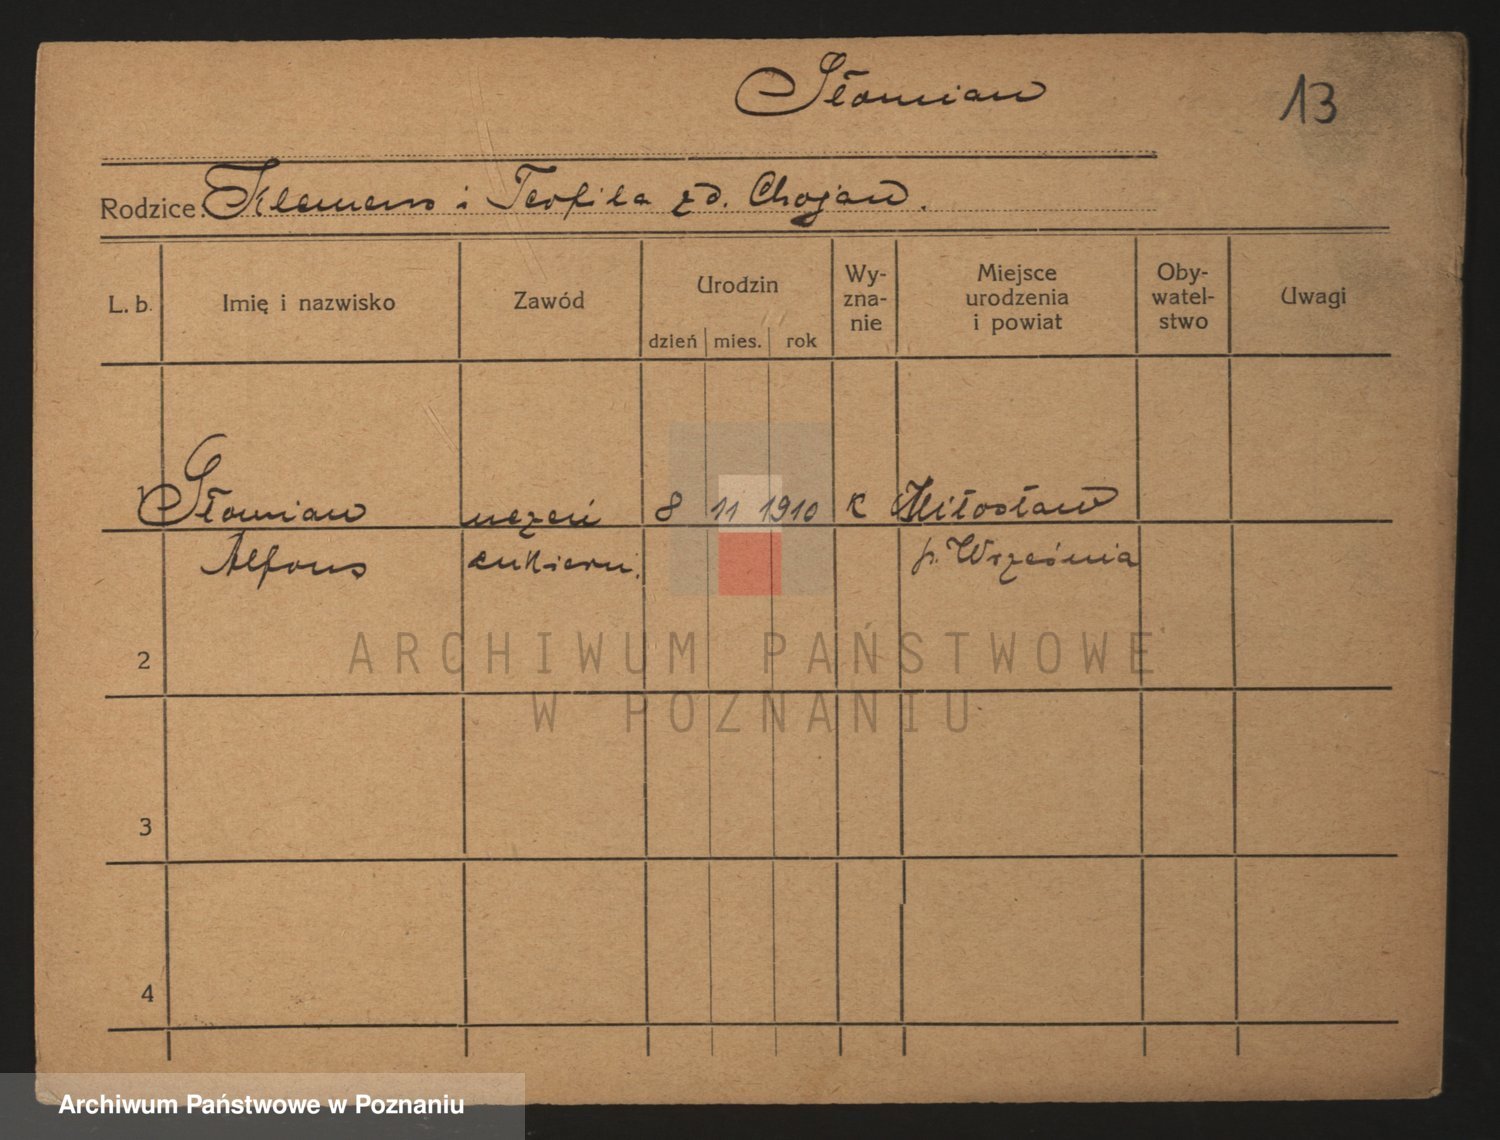 Słomian
13
Rodzice: Klemens i Teofila zd. Chojan.
L. b.
Imię i nazwisko
Zawód
Urodzin
dzień mies. rok
Wy-
zna-
nie
Miejsce
urodzenia
i powiat
Oby-
watel-
stwo
Uwagi
1 Słomian uczeń 8 11 1910 K Miłosław
Alfons cukierni. p. Września
2
ARCHIWUM PAŃSTWOWE
W POZNANIU
3
4
Archiwum Państwowe w Poznaniu